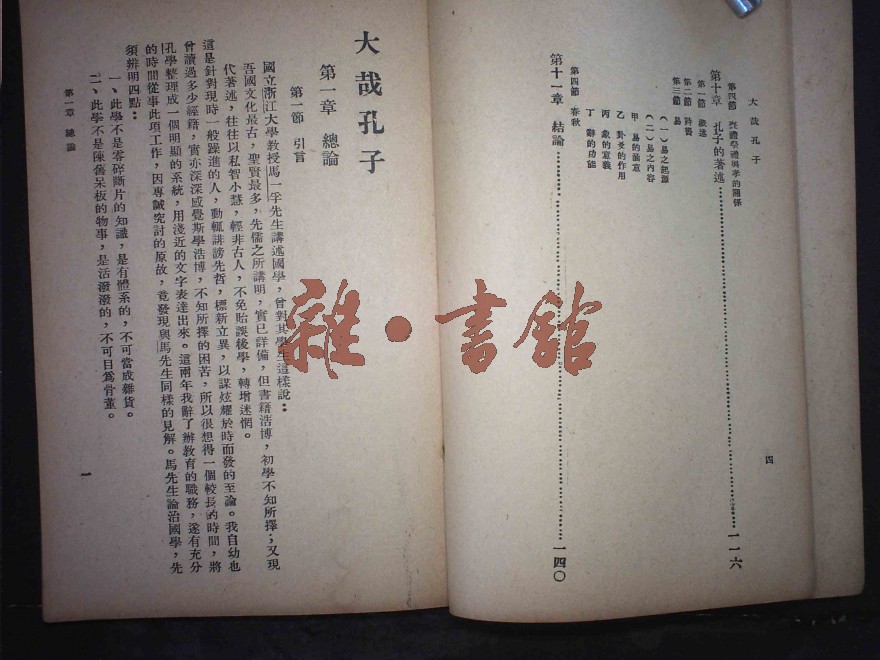 大哉孔子
第四節 喪禮祭禮與孝的關係
第十章 孔子的著述……116
第一節 敍述
第二節 詩書
第三節 易
(一)易之起源
(二)易之內容
甲、易的涵意
乙、卦爻的作用
丙、象的意義
丁、辭的功能
第四節 春秋
第十一章 結論……140
四
大哉孔子
第一章 總論
第一節 引言
國立浙江大學教授馬一孚先生講述國學,曾對其學生這樣說:
吾國文化最古,聖賢最多,先儒之所講明,實已詳備,但書籍浩博,初學不知所擇;又現
代著述,往往以私智小慧,輕非古人,不免貽誤後學,轉增迷惘。
這是針對現時一般躁進的人,動輒誹謗先哲,標新立異,以謀炫耀於時而發的至論。我自幼也
曾讀過多少經籍,實亦深深感覺斯學浩博,不知所擇的困苦,所以很想得一個較長的時間,將
孔學整理成一個明顯的系統,用淺近的文字表達出來。這兩年我辭了辦教育的職務,遂有充分
的時間從事此項工作,因專誠究討的原故,竟發現與馬先生同樣的見解。馬先生論治國學,先
須辨明四點:
一、此學不是零碎斷片的知識,是有體系的,不可當成雜貨。
二、此學不是陳舊呆板的物事,是活潑潑的,不可目爲骨董。
第一章 總論
一
雜·書館